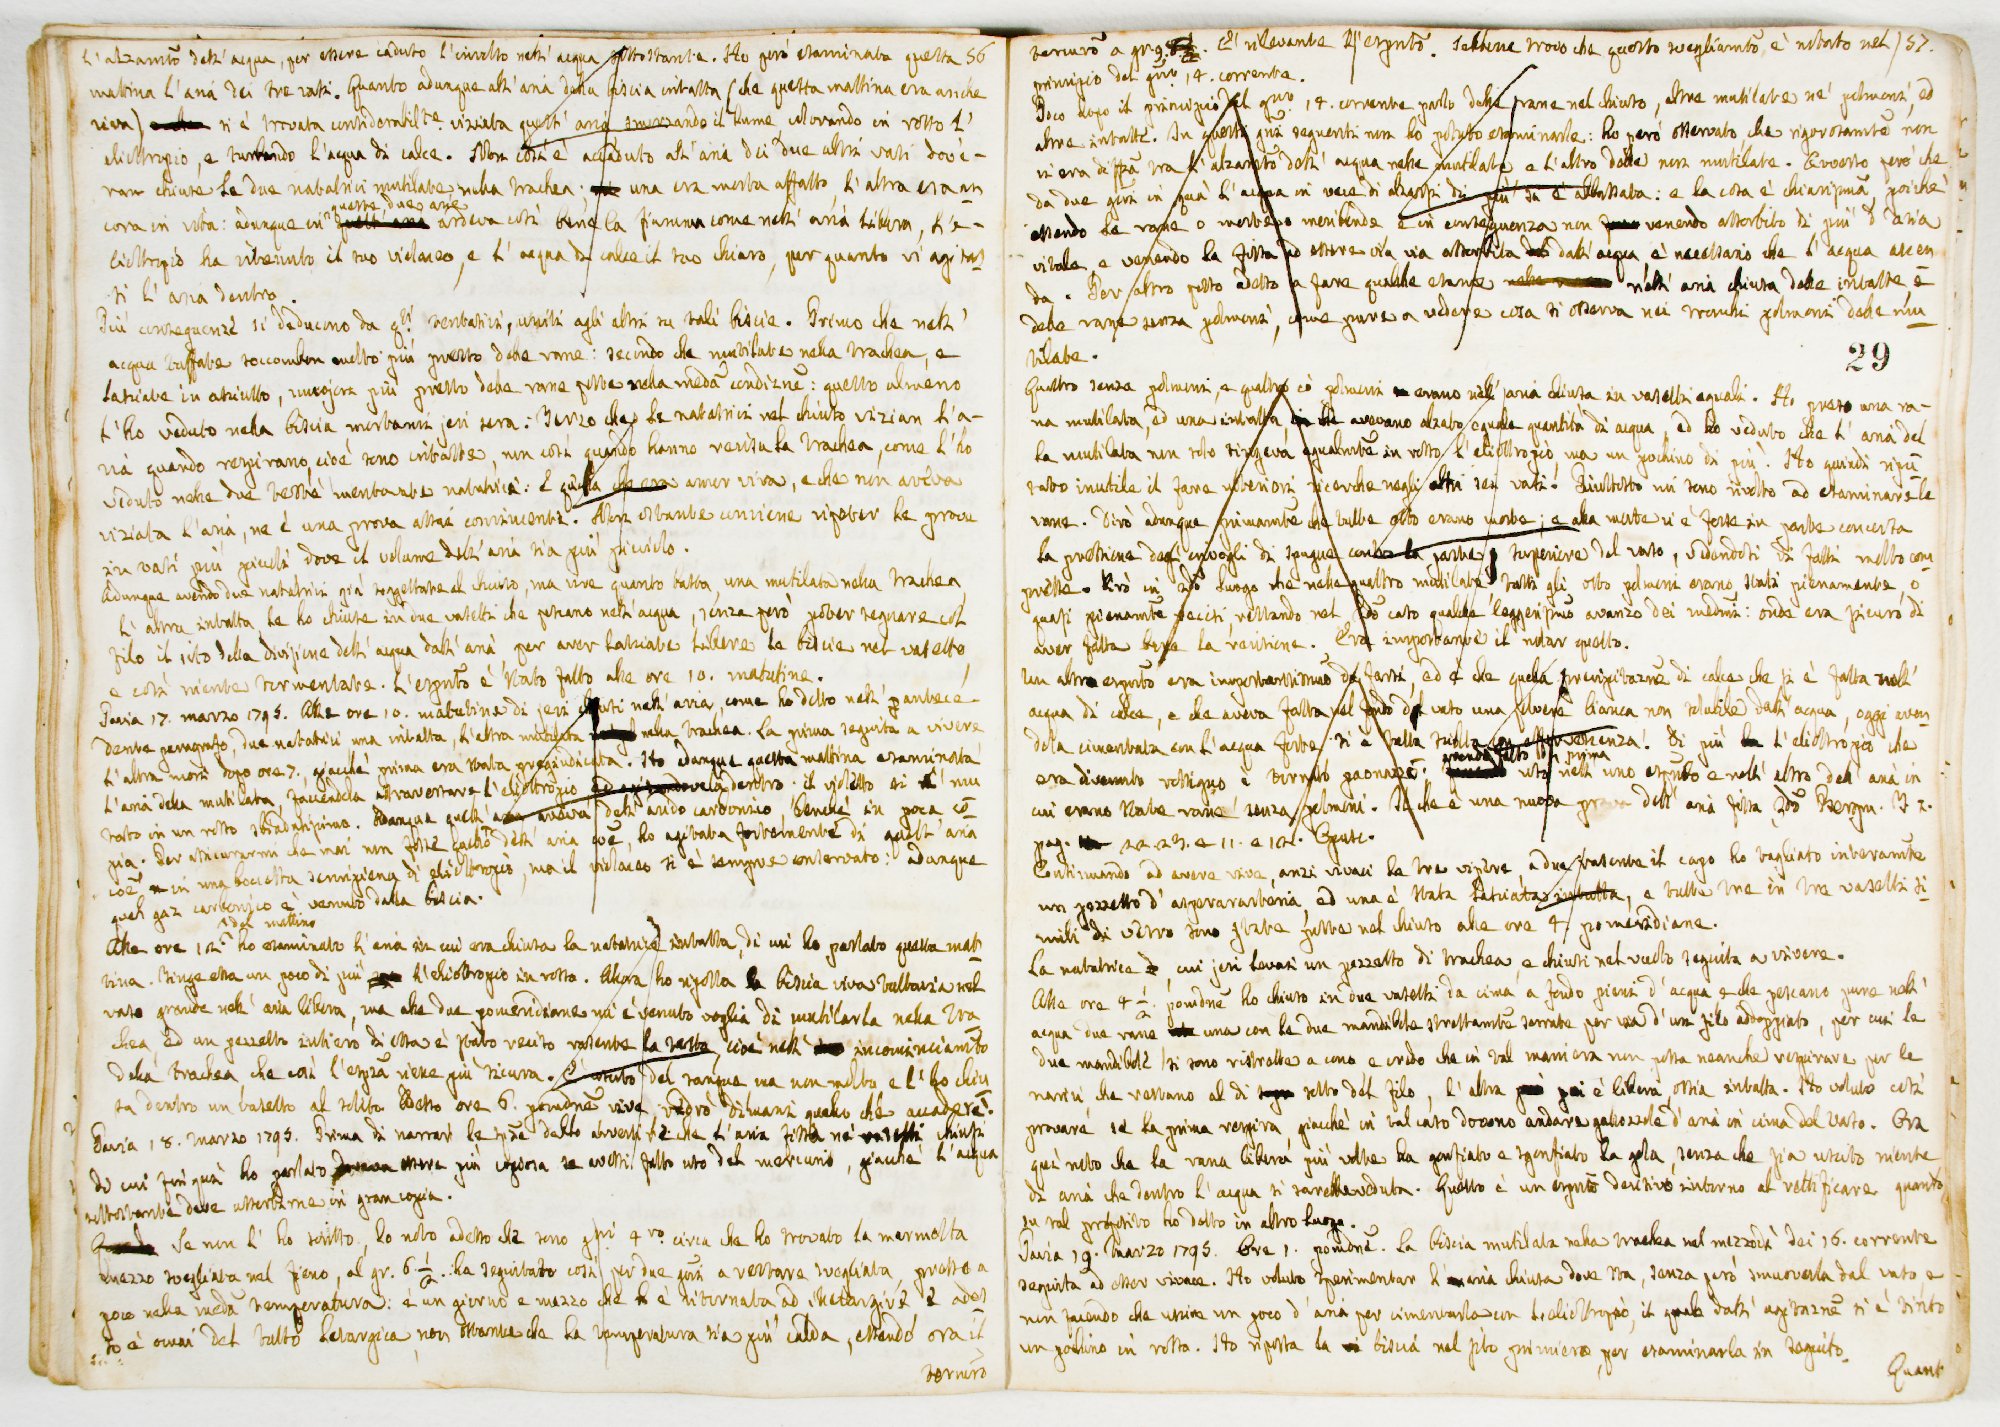 l'alzamto dell'acqua, per essere caduto l'involto nell'acqua sottostante. Ho però esaminata questa 56
mattina l'aria dei tre vasi. Quanto adunque all'aria della biscia intatta (che questa mattina era anche
viva) si è trovata considerabilte viziata quell'aria smorzando il lume colorando in rosso l'
eliotropio, e turbando l'acqua di calce. Non così è accaduto all'aria dei due altri vasi dov'e-
ran chiuse le due natatrici mutilate nella trachea; una era morta affatto, l'altra era an
queste due arie
cora in vita: adunque in ardeva così bene la fiamma come nell'aria libera, l'e-
liotropio ha ritenuto il suo violaceo, e l'acqua di calce il suo chiaro, per quanto vi agitas
si l'aria dentro.
Più conseguenze si deducono da qti tentativi, uniti agli altri su tali biscie. Primo che nell'
acqua tuffate soccombon molto più presto delle rane: secondo che mutilate nella trachea, e
lasciate in asciutto, muojon più presto delle rane poste nella meda condizne: questo almeno
l'ho veduto nella biscia mortami jeri sera: Terzo che le natatrici nel chiuso vizian l'a-
ria quando respirano, cioè sono intatte, non così quando hanno recisa la trachea, come l'ho
veduto nelle due testè mentovate natatrici: E quella che era ancor viva, e che non aveva
viziata l'aria, ne è una prova assai convincente. Non ostante conviene ripeter le prove
in vasi più piccoli dove il volume dell'aria sia più piccolo.
Adunque avendo due natatrici già soggettate al chiuso, ma vive quanto basta, una mutilata nella trachea,
l'altra intatta le ho chiuse in due vasetti che pescano nell'acqua, senza però poter segnare col
filo il sito della divisione dell'acqua dall'aria per aver lasciate libere le biscie nel vasetto
e così niente tormentate. L'esprto è stato fatto alle ore 10. matutine.
Pavia 17. marzo 1795. Alle ore 10. matutine di jeri chiusi nell'aria, come ho detto nell'antece-
dente paragrafo, due natatrici una intatta, l'altra mutilata nella trachea. La prima seguita a vivere
l'altra morì dopo ore 7., giacchè prima era stata pregiudicata. Ho adunque questa mattina esaminata
l'aria della mutilata, facendola attraversare l'eliotropio ed agitandovela dentro. il violetto si è mu
tato in un rosso sbiadatissimo. Adunque quell'aria aveva dell'acido carbonico, benchè in poca co
pia. Per assicurarmi che mai non fosse cagione dell'aria coe, ho agitata fortemente di quell'aria
coe in una boccetta semipiena di eliotropio, ma il violaceo si è sempre conservato: adunque
quel gaz carbonico è venuto dalla biscia.
del mattino
Alle ore 12. ho esaminato l'aria in cui era chiusa la natatrice intatta, di cui ho parlato questa mat
tina. Tinge essa un poco di più l'eliotropio in rosso. Allora ho riposta la biscia viva tuttavia nel
vaso grande nell'aria libera, ma alle due pomeridiane mi è venuto voglia di mutilarla nella tra
chea ed un pezzetto intiero di essa è stato reciso rasente la testa, cioè nell' incominciamto
della trachea, che così l'esprza viene più sicura. È uscito del sangue ma non molto e l'ho chiu
sa dentro un vasetto al solito. Verso ore 6. pomdne vive, vedrò dimani quello che accaderà.
Pavia 18. marzo 1795. Prima di narrare le espze debbo avvertire che l'aria fissa ne' vasetti chiusi
di cui fin quì ho parlato essere più copiosa se avessi fatto uso del mercurio, giacchè l'acqua
sottostante deve assorbirne in gran copia.
Se non l'ho scritto, lo noto adesso che sono gni 4ro circa che ho trovato la marmotta
mezzo svegliata nel fieno, al gr. 6 1/2. ha seguitato così per due gni a restare svegliata, presso a
poco nella meda temperatura: è un giorno e mezzo che è ritornata ad illetargirsi e ades
so è ormai del tutto letargica, non ostante che la temperatura sia più calda, essendo ora il
termro
termro a gr. 9. È rilevante l'esprto. Sebbene trovo che questo svegliamto, è notato nel 57.
principio del gno 14. corrente.
Poco dopo il principio del gno 14. corrente parlo delle rane nel chiuso, altre mutilate ne' polmoni, ed
altre intatte. In questi gni seguenti non ho potuto esaminarle: ho però osservato che rigorosamte non
vi era diffza tra l'alzamto dell'acqua nelle mutilate e l'altro delle non mutilate. Avverto però che
da due gni in quà l'acqua in vece di alzarsi di più si è abbassata: e la cosa è chiarissima, poichè
essendo le rane o morte o moribonde e in conseguenza non venendo assorbito di più d'aria
vitale, e venendo la fissa ad essere via via assorbita dall'acqua è necessario che l'acqua ascen
da. Per altro posso adesso a fare qualche esame nell'aria chiusa delle intatte e
delle rane senza polmoni, come pure a vedere cosa si osserva nei tronchi polmoni delle mu
tilate.
29
Quattro senza polmoni, e quattro co' polmoni erano nell'aria chiusa in vasetti eguali. Ho preso una ra-
na mutilata, ed una intatta, avevano alzato eguale quantità di acqua, ed ho veduto che l'aria del
la mutilata non solo tingeva egualmte in rosso l'eliotropio ma un pochino di più. Ho quindi ripu
tato inutile il fare ulteriori ricerche negli altri sei vasi. Piuttosto mi sono rivolto ad esaminare le
rane. Dirò adunque primamte che tutte otto erano morte; e alla morte vi è forse in parte concorsa
la pressione degl'invogli di spugne contro la parte superiore del vaso, vedendosi di fatti molto com
presse. Dirò in 2do luogo che nelle quattro mutilate tutti gli otto polmoni erano stati pienamente, o
quasi pienamte recisi, restando nel 2do caso qualche leggerissimo avanzo dei medmi: onde era sicuro di
aver fatta bene la recisione. Era importante il notar questo.
Un altro esprto era importantissimo da farsi, ed è che quella precipitazne di calce che si è fatta nell'
acqua di calce, e che aveva fatto nel fondo del vaso una polvere bianca non solubile dall'acqua, oggi aven
dola cimentata con l'acqua forte si è tutta sciolta con effervescenza. Di più l'eliotropio che
avendo fatto in prima
era divenuto rossigno è tornato paonazzo. uso nell'uno esprto e nell'altro dell'aria in
cui erano state rane senza polmoni. Il che è una nuova prova dell'aria fissa 2do Bergm. T 2.
pag. 22. 23. e 11. e 12. Opusc.
Continuando ad avere vive, anzi vivaci le tre vipere, a due rasente il capo ho tagliato interamte
un pezzetto d'asperarteria, ed una è stata lasciata intatta, e tutte tre in tre vasetti si
mili di vetro sono state poste nel chiuso alle ore 4 pomeridiane.
La natatrice a cui jeri levai un pezzetto di trachea, e chiusi nel vasetto seguita a vivere.
Alle ore 4 1/2. pomdne ho chiuso in due vasetti da cima a fondo pieni d'acqua e che pescano pure nell'
acqua due rane una con le due mandibole strettamte serrate per via d'un filo addoppiato, per cui le
due mandibole si sono ristrette a cono e credo che in tal maniera non possa neanche respirare per le
narici che restano al di sotto del filo, l'altra poi è libera ossia intatta. Ho voluto così
provare se la prima respira, giacchè in tal caso devono andare gallozzole d'aria in cima del vaso. Ora
quì noto che la rana libera più volte ha gonfiato e sgonfiato la gola, senza che sia uscito niente
di aria che dentro l'acqua si sarebbe veduta. Questo è un esprto decisivo intorno al rettificare quanto
su tal proposito ho detto in altro luogo.
Pavia 19. Marzo 1795. Ore 1. pomdne. La biscia mutilata nella trachea nel mezzodì dei 16. corrente
seguita ad esser vivace. Ho voluto sperimentar l'aria chiusa dove sta, senza però smuoverla dal vaso e
non facendo che uscire un poco d'aria per cimentarla con l'eliotropio, il quale dall'agitazne si è tinto
un pochino in rosso. Ho riposta la biscia nel sito primiero per esaminarla in seguito.
Quant